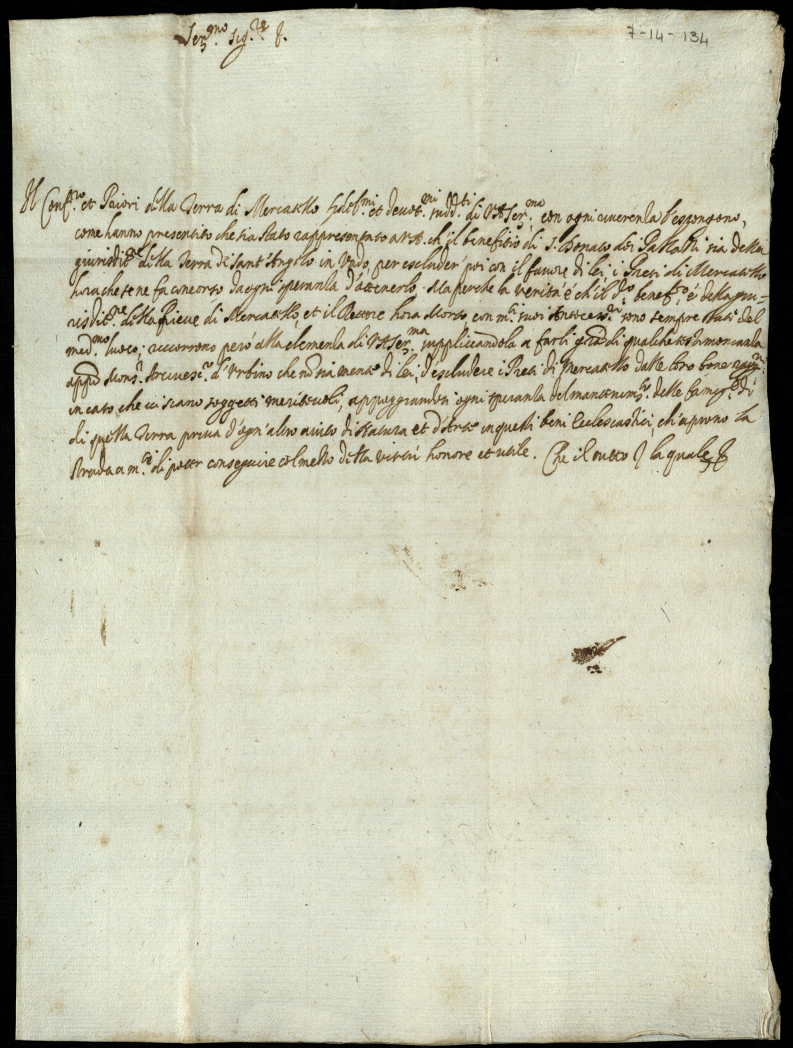 Ser.mo Sig.re &.
7-14-134
Il Cons.ro et Priori della Terra di Mercatello fidel.mi et devot.mi sudd.ti di V.A. Ser.mo con ogni riverenza l'espongono,
come hanno presentito che sia stato rappresentato a V.A. ch'il benefitio di S. Donato dei sia della
giurisdit.ne della Terra de Sant'Angelo in Vado, per escluder poi con il favore di lei, i Preti di Mercatello
hora che se ne fa concorso da ogni speranza d'ottenerlo. Ma perche la verità é ch'il d.o benef.o é della giu-
risdit.ne della Pieve di Mercatello, et il Rettore hora morto con m.ti suoi Antecess.i sono sempre stati del
med.mo luoco; riccorrono però alla clemenza di V.A. Ser.ma supplicandola a farli grã di qualche testimonianza
app.o Mons.r Arcivesc.o d'Urbino che nõ sia mente di lei, d'escludere i Preti di Mercatello dalle loro bone ragg.ni
in caso, che ci siano soggetti meritevoli, appoggiandosi ogni speranza del mantenim.to delle famig.e di
di quella Terra priva d'ogn'altro aiuto di Natura et d'Arte in questi beni Ecclesiastici, ch'aprono la
strada a m.ti di poter conseguire col mezzo della virtù honore et utile. Che il tutto & la quale &